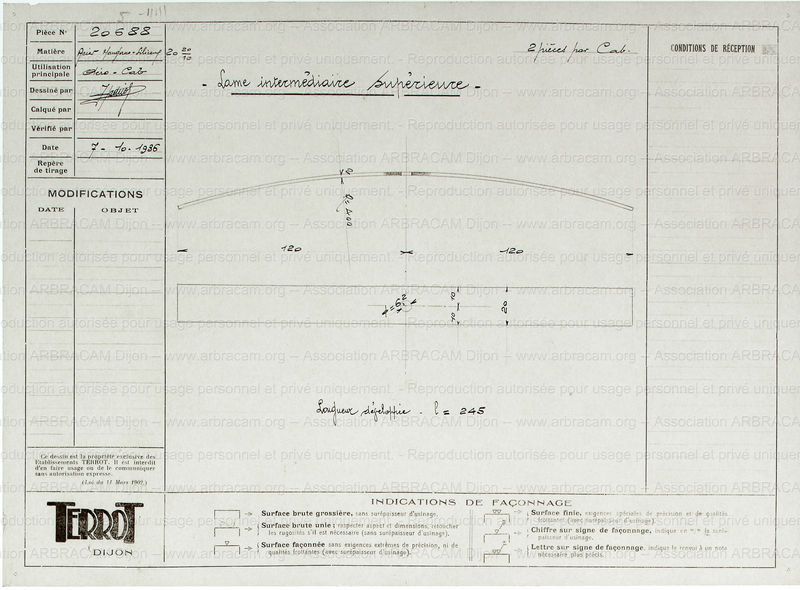 Pièce N° 20688
Matière Acier Mangano-Siliceux 20 20/10
Utilisation principale Aéro-Cab
Dessiné par
Calqué par
Vérifié par
Date 7-10-1936
Repère de tirage
MODIFICATIONS
DATE OBJET
2 pièces par Cab.
CONDITIONS DE RÉCEPTION
- Lame intermédiaire Supérieure -
2
R = 400
120 120
10
10
20
Longueur développée . l = 245
Ce dessin est la propriété exclusive des
Etablissements TERROT. Il est interdit
d'en faire usage ou de le communiquer
sans autorisation expresse.
(Loi du 11 Mars 1902.)
TERROT
DIJON
INDICATIONS DE FAÇONNAGE
Surface brute grossière, sans surépaisseur d'usinage.
Surface brute unie : respecter aspect et dimensions, retoucher
les rugosités s'il est nécessaire (sans surépaisseur d'usinage).
Surface façonnée sans exigences extrêmes de précision, ni de
qualités frottantes (avec surépaisseur d'usinage).
Surface finie, exigences spéciales de précision et de qualités
frottantes (avec surépaisseur d'usinage).
Chiffre sur signe de façonnage, indique en m/m la surépaisseur d'usinage.
Lettre sur signe de façonnage, indique le renvoi à un note
nécessaire plus précis.
www.arbracam.org – Association ARBRACAM Dijon
Reproduction autorisée pour usage personnel et privé uniquement.